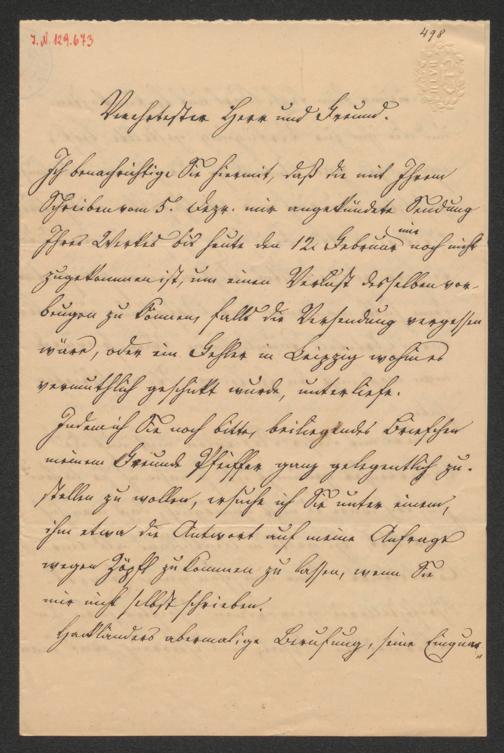 I. N. 129.673
498
BATH
Verehrtester Herr und Freund.
Ich benachrichtige Sie hiermit, daß die mit Ihrem
Schreiben vom 5t. Dezr. mir angekündete Sendung
Ihres Werkes bis heute den 12. Februar mir noch nicht
zugekommen ist, um einen Verlust desselben vor-
beugen zu können, falls die Versendung vergessen
wäre, oder ein Fehler in Leipzig wohin es
vermuthlich geschickt wurde, unterliefe.
Indem ich Sie noch bitte, beiliegendes Briefchen
meinem Freunde Pfeiffer ganz gelegentlich zu-
stellen zu wollen, ersuche ich Sie unter einem,
ihm etwa die Antwort auf meine Anfrage
wegen Zöpfl zukommen zu lassen, wenn Sie
mir nicht selbst schrieben.
Hackländers abermalige Berufung, seine